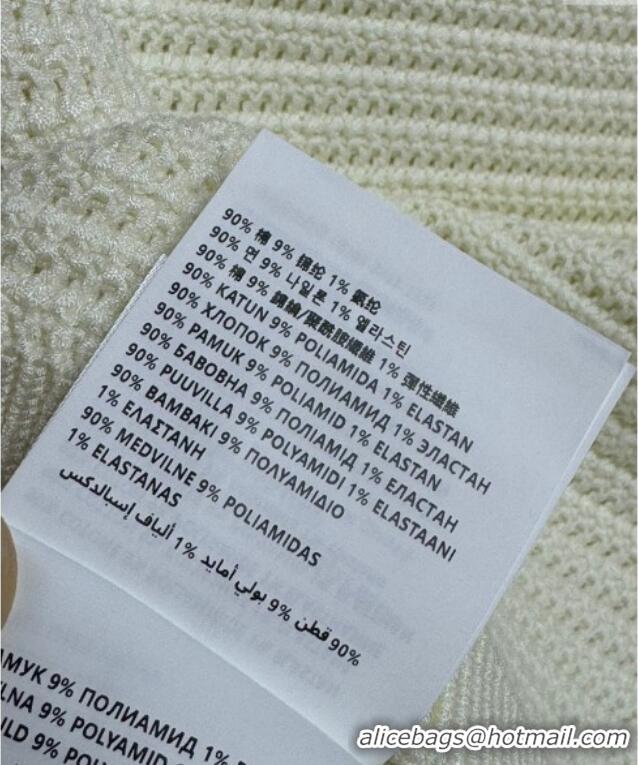 90% 棉 9% 锦纶 1% 氨纶
90% 면 9% 나일론 1% 엘라스틴
90% 棉 9% 錦綸/聚醯胺纖維 1% 彈性纖維
90% KATUN 9% POLIAMIDA 1% ELASTAN
90% ХЛОПОК 9% ПОЛИАМИД 1% ЭЛАСТАН
90% PAMUK 9% POLIAMID 1% ELASTAN
90% БАВОВНА 9% ПОЛІАМІД 1% ЕЛАСТАН
90% PUUVILLA 9% POLYAMIDI 1% ELASTAANI
90% ΒΑΜΒΑΚΙ 9% ΠΟΛΥΑΜΙΔΙΟ
1% ΕΛΑΣΤΑΝΗ
90% MEDVILNE 9% POLIAMIDAS
1% ELASTANAS
90% قطن 9% بولي أمايد 1% ألياف إسبالدكس
АМУК 9% ПОЛИАМИД 1%
LNA 9% POLYAMID
9% POLYAM
alicebags@hotmail.com